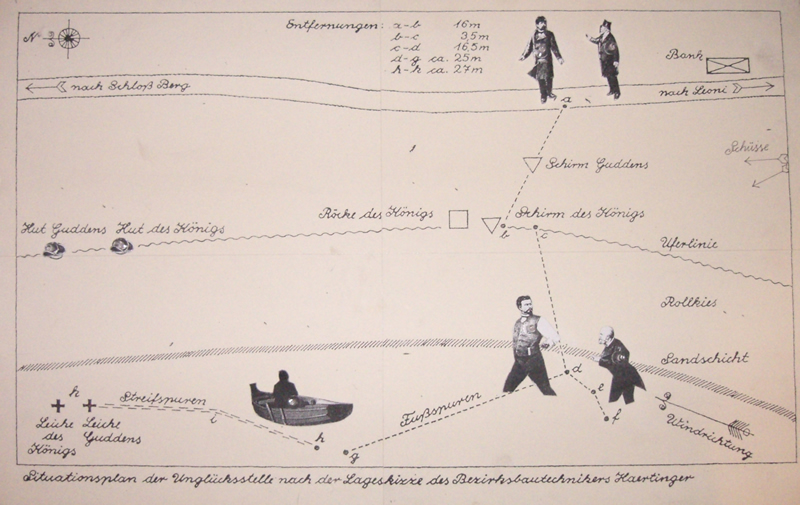 N
Entfernungen: a-b 16m
b-c 3,5m
c-d 16,5m
d-g ca. 25m
h-h ca. 27m
Bank
nach Schloß Berg
nach Leoni
a
Schüsse
Schirm Guddens
Röcke des Königs
Schirm des Königs
b
c
Hut Guddens
Hut des Königs
Uferlinie
Rollkies
Sandschicht
d
e
f
h
Streifspuren
i
Fußspuren
h
g
Windrichtung
Leiche des Königs
Leiche Guddens
Situationsplan der Unglücksstelle nach der Lageskizze des Bezirksbautechnikers Haertinger